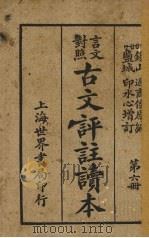 錫山過商侯原編
鹽城印水心增訂
第六冊
言文
對照
古文評註讀本
上海世界書局印行